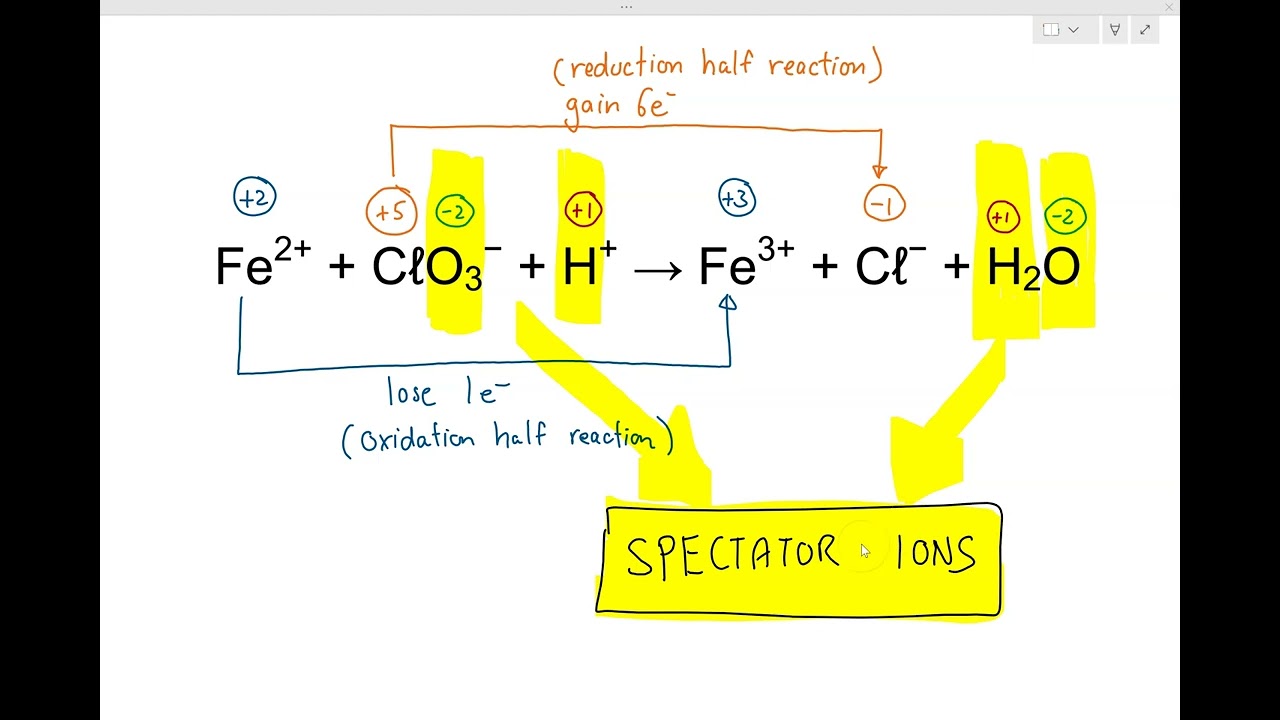 (reduction half reaction)
gain 6e⁻
+2 +5 -2 +1 +3 -1 +1 -2
Fe²⁺ + CℓO₃⁻ + H⁺ → Fe³⁺ + Cℓ⁻ + H₂O
lose 1e⁻
(oxidation half reaction)
SPECTATOR IONS